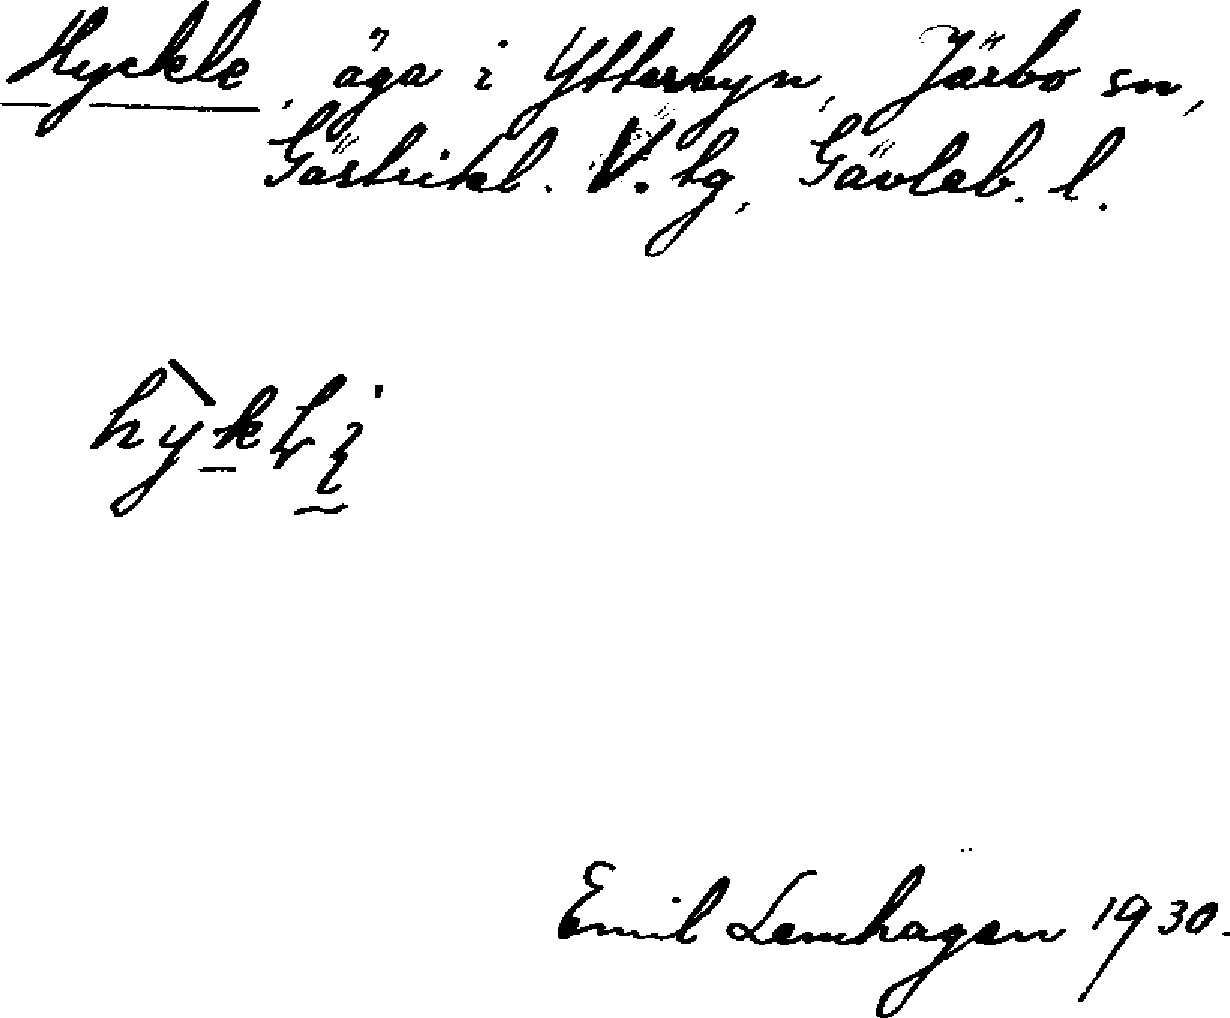 Hyckle, äga i Ytterbyn, Järbo sn,
Gästrikl. V. tg, Gävleb. l.
Emil Lemhagen 1930.